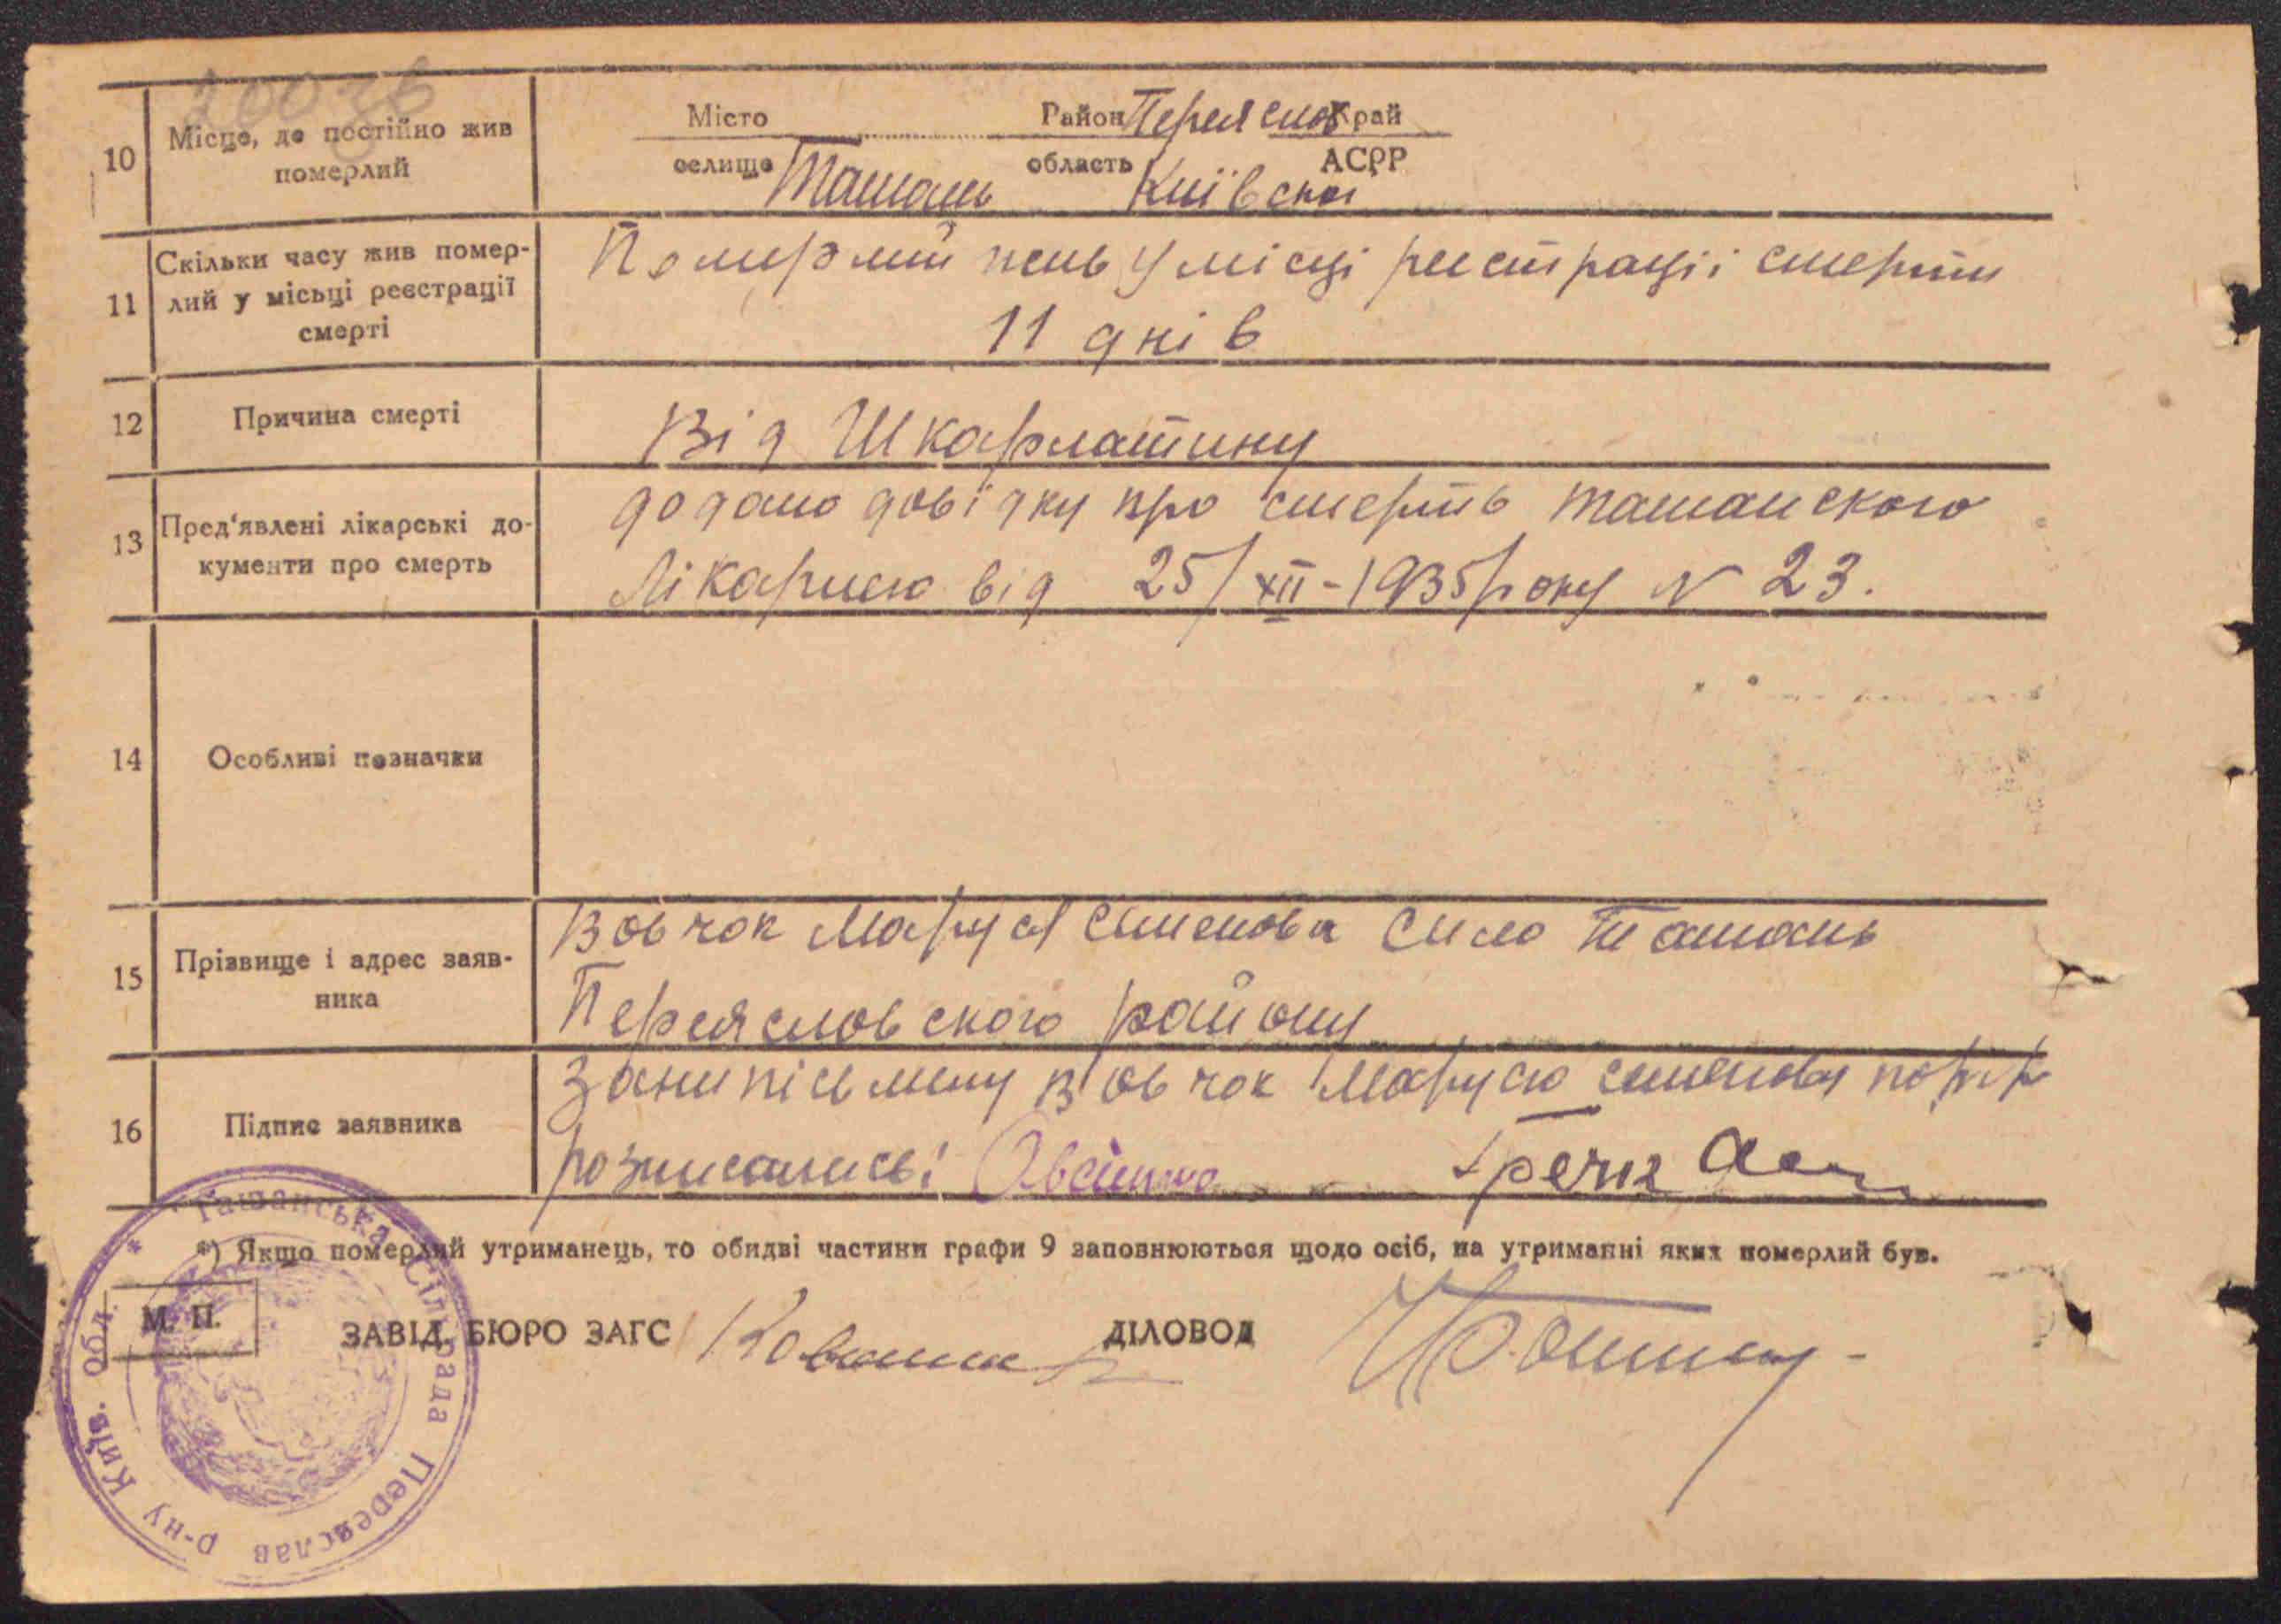 10
Місце, де постійно жив
померлий
Місто Район Переяслов Край
селище Ташань область Київська АСРР
11
Скільки часу жив помер-
лий у місьці реєстрації
смерті
Померлий у місці реєстрації смерти
11 днів
12
Причина смерті
Від Шкарлатину
13
Пред'явлені лікарські до-
кументи про смерть
додано довідку про смерть ташанского
Лікарнею від 25/XII-1935 року № 23.
14
Особливі позначки
15
Прізвище і адрес заяв-
ника
Вовчок Маруся Семенова Село Ташань
Переясловського району
16
Підпис заявника
Вовчок Марусю Семенову
розписались:
Ташанська Сільрада Переяслав р-ну Київ. Обл.
*) Якщо померлий утриманець, то обидві частини графи 9 заповнюються щодо осіб, на утриманні яких померлий був.
М. П.
ЗАВІД. БЮРО ЗАГС ДІЛОВОД